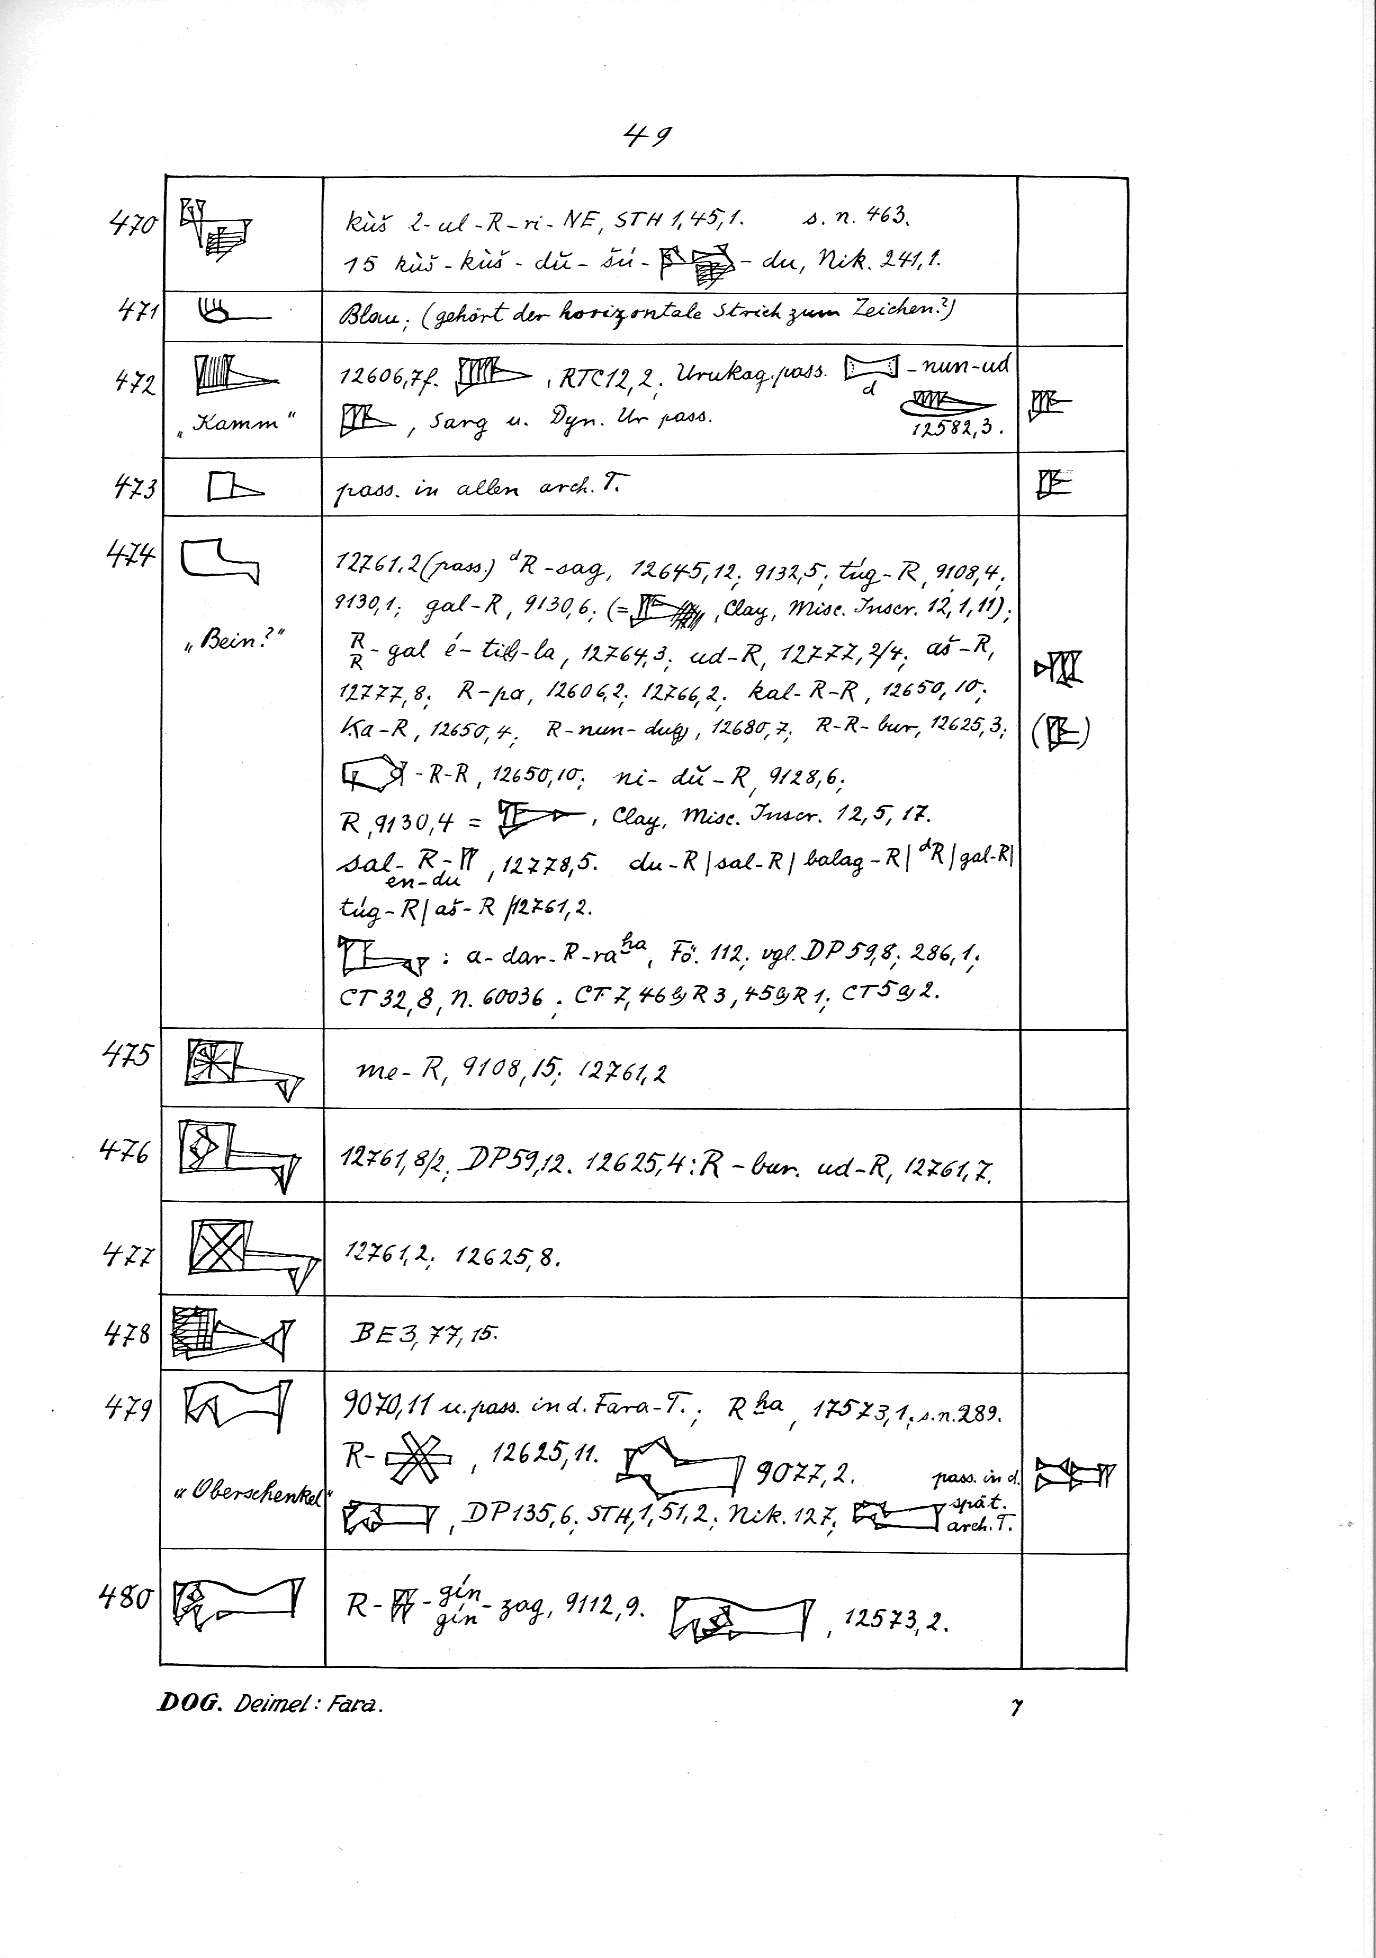 49
470 kùš 2-ul-R-ri-NE, STH 1,45,1. s. n. 463.
15 kùš-kùš-dŭ-šú- -du, Nik. 241,1.
471 Blau; (gehört der horizontale Strich zum Zeichen?)
472 12606,7f. , RTC12,2; Urukag. pass. -nun-ud
d
„Kamm“ , Sarg u. Dyn. Ur pass. 12582,3.
473 pass. in allen arch. T.
474 12761,2 (pass.) ᵈR-sag, 12645,12; 9132,5; túg-R, 9108,4;
9130,1; gal-R, 9130,6; (= , Clay, Misc. Inscr. 12,1,11);
„Bein?“ R
R -gal é-til-la, 12764,3; ud-R, 12777,2/4; aš-R,
12777,8; R-pa, 12606,2; 12766,2; kal-R-R, 12650,10;
Ka-R, 12650,4; R-nun-dug, 12680,7; R-R-bur, 12625,3;
-R-R, 12650,10; ni-dŭ-R, 9128,6;
R, 9130,4 = , Clay, Misc. Inscr. 12,5,17.
sal-R- , 12778,5. du-R | sal-R | balag-R | ᵈR | gal-R |
en-du
túg-R | aš-R | 12761,2.
: a-dar-R-ra ha, Fö. 112; vgl. DP59,8; 286,1;
CT32,8, n. 60036; CT7,46 R3, 45 R1; CT5 2.
475 me-R, 9108,15; 12761,2
476 12761,8/2; DP59,12. 12625,4: R-bur. ud-R, 12761,7.
477 12761,2; 12625,8.
478 BE3,77,15.
479 9070,11 u. pass. in d. Fara-T.; R ha, 17573,1; s. n. 289.
R- , 12625,11. 9077,2. pass. in d.
„Oberschenkel“ , DP135,6; STH,1,51,2; Nik. 127; spät.
arch. T.
480 R- -gín
gín -zag, 9112,9. , 12573,2.
DOG. Deimel: Fara. 7